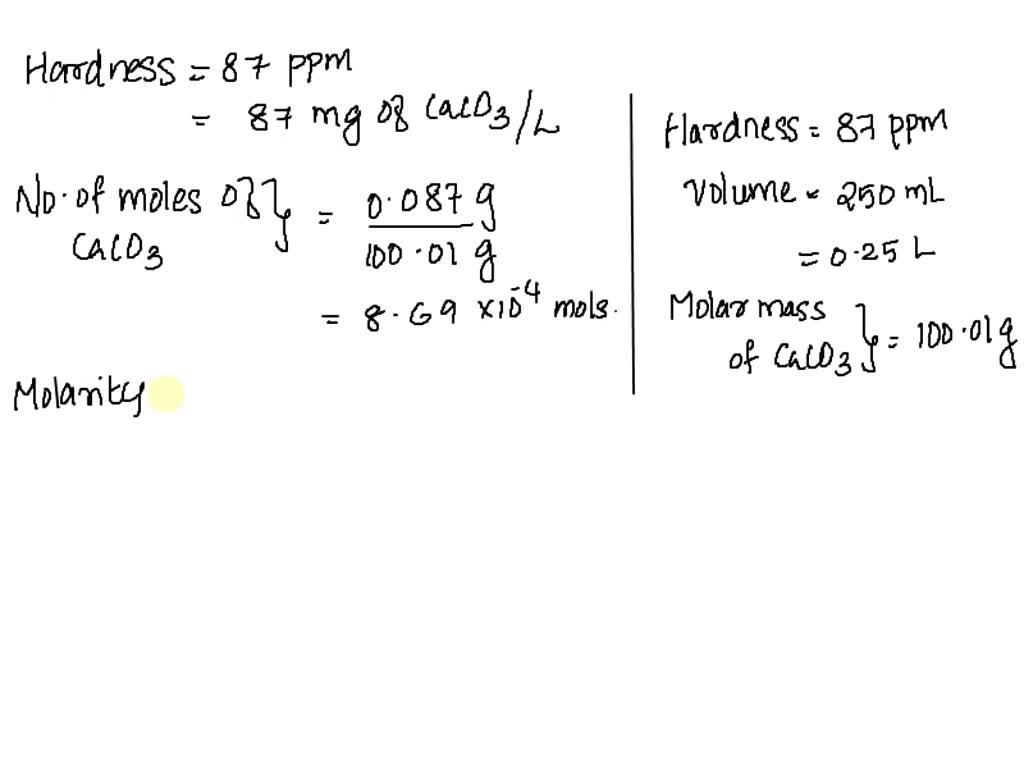 Hardness = 87 ppm
= 87 mg of CaCO3/L
No. of moles of } = 0.087 g
CaCO3 100.01 g
= 8.69 ×10-4 mols.
Molarity
Hardness = 87 ppm
Volume = 250 mL
= 0.25 L
Molar mass
of CaCO3 } = 100.01g